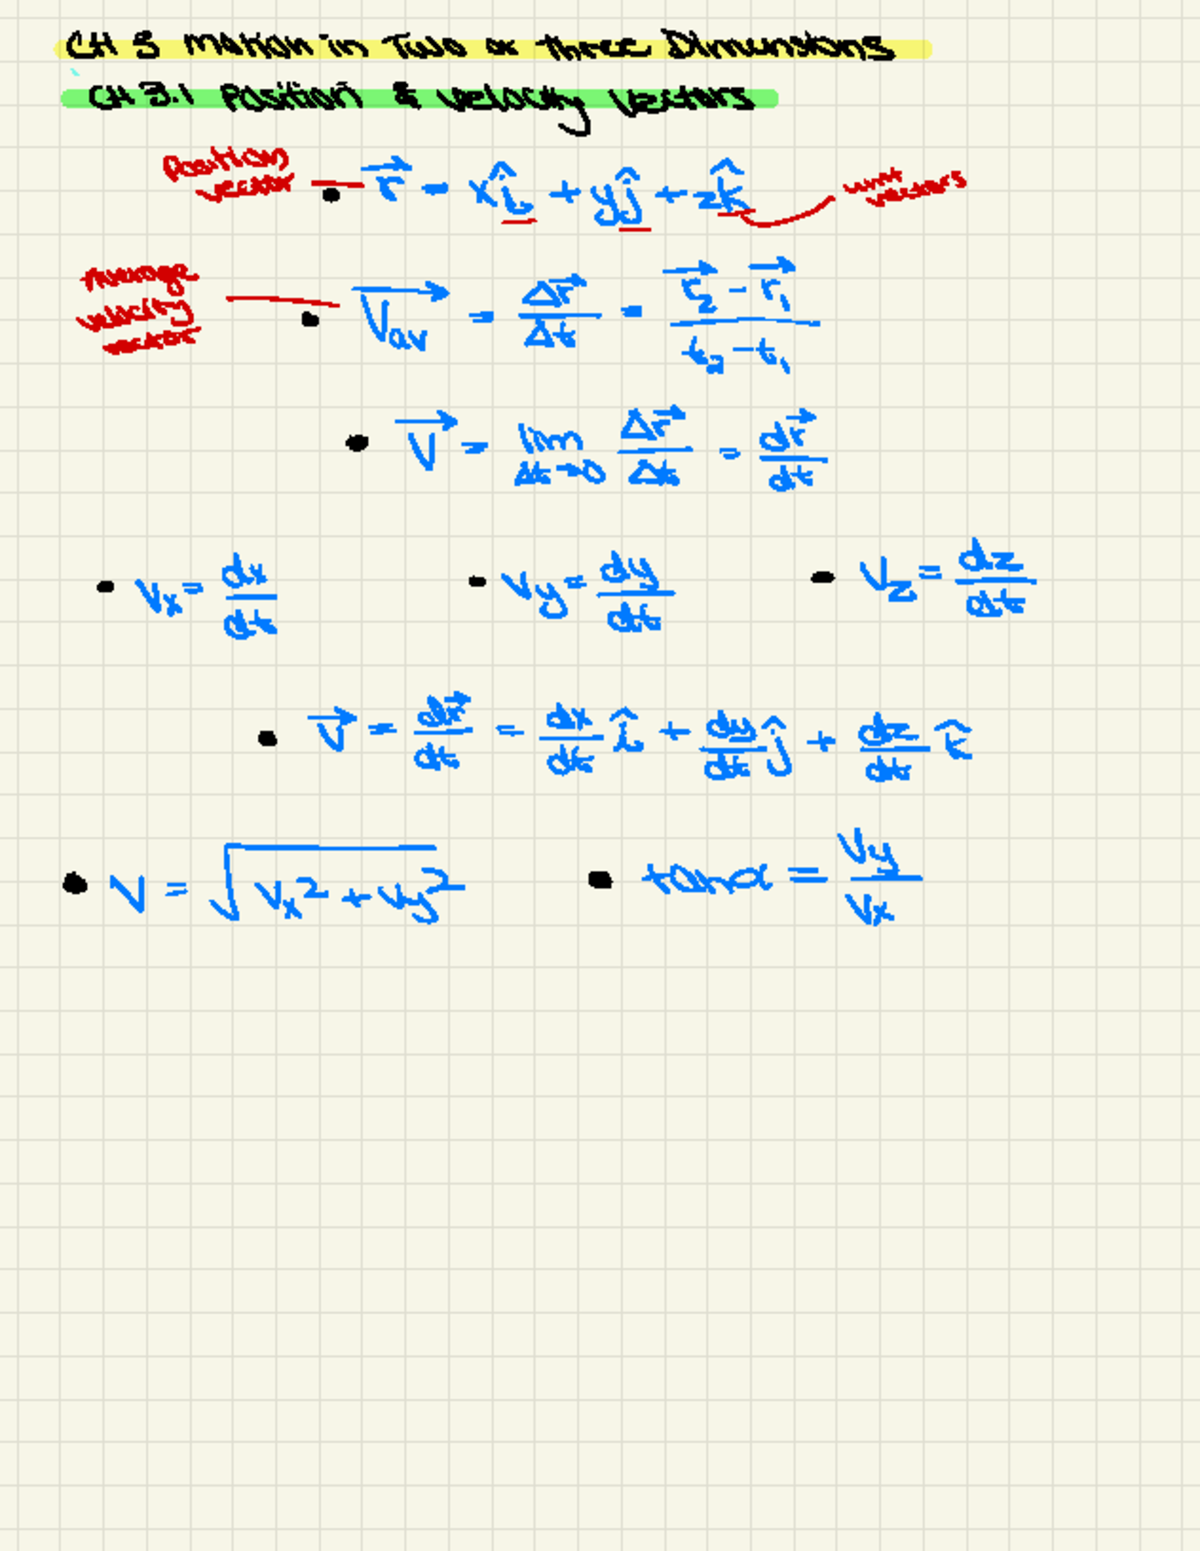 CH 3 Motion in Two or three Dimensions
CH 3.1 Position & velocity vectors
Position vector — • r⃗ = xî + yĵ + zk̂ unit vectors
Average velocity vector — • V⃗av = Δr⃗/Δt = (r⃗₂ - r⃗₁)/(t₂ - t₁)
• V⃗ = lim Δt→0 Δr⃗/Δt = dr⃗/dt
• Vx = dx/dt • Vy = dy/dt • Vz = dz/dt
• V⃗ = dr⃗/dt = dx/dt î + dy/dt ĵ + dz/dt k̂
• V = √(Vx² + Vy²) • tanα = Vy/Vx